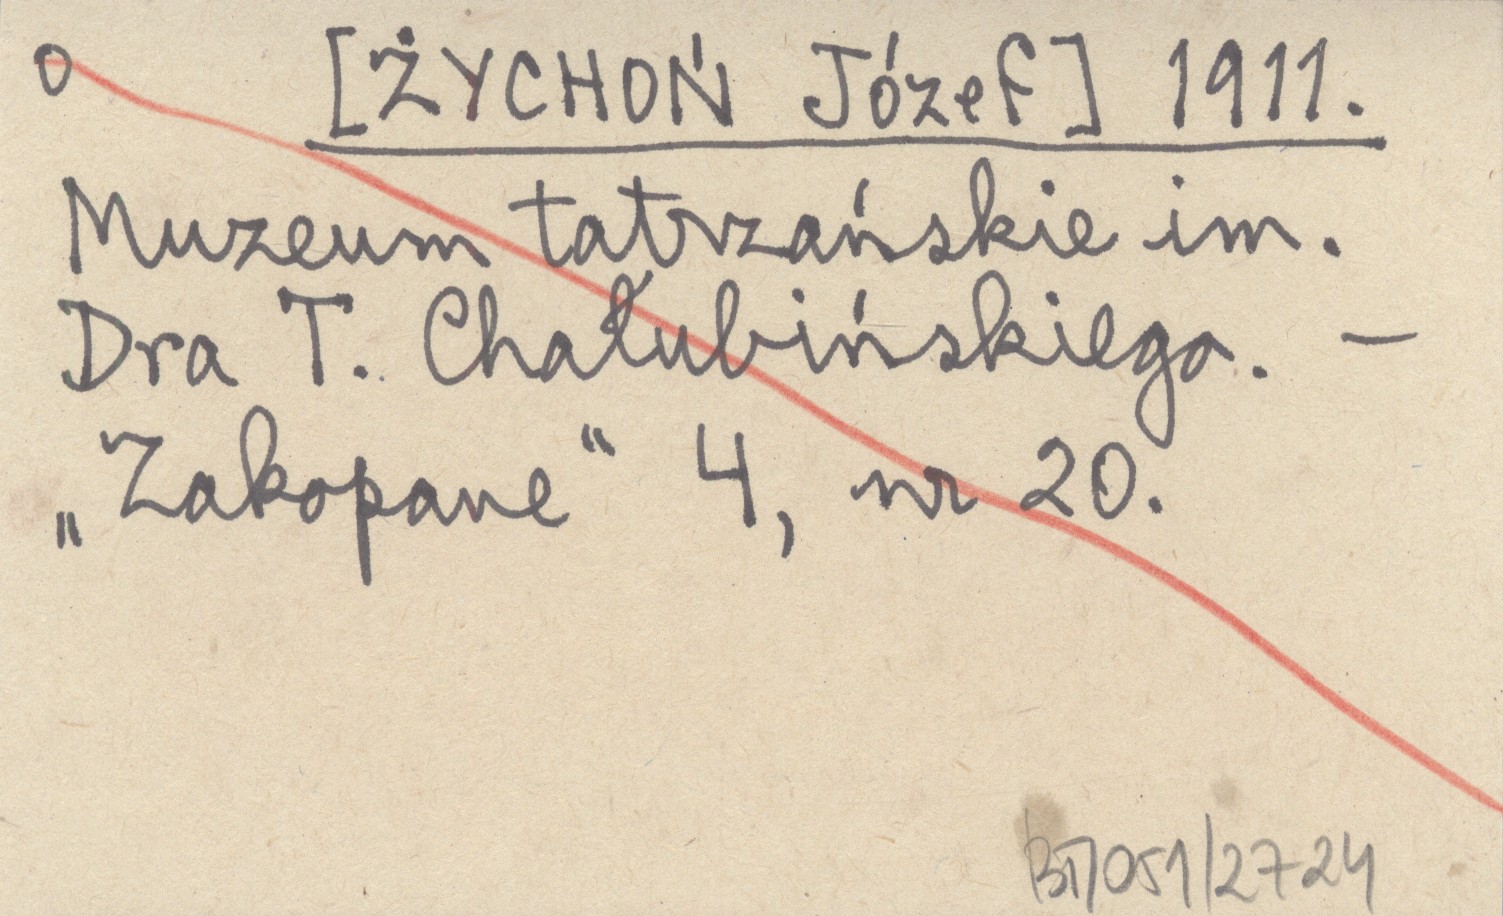 O [ŻYCHOŃ Józef] 1911.
Muzeum tatrzańskie im.
Dra T. Chałubińskiego. —
„Zakopane“ 4, nr 20.
BT/051/2724